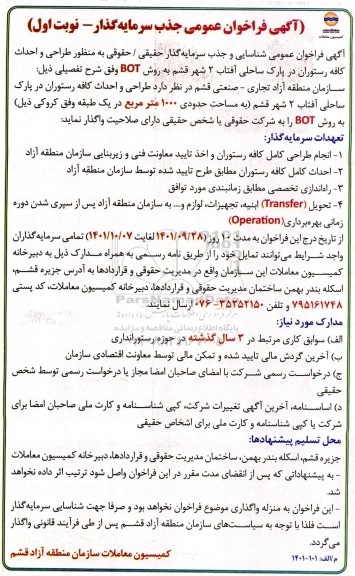 (آگهی فراخوان عمومی جذب سرمایه‌گذار – نوبت اول)
آگهی فراخوان عمومی شناسایی و جذب سرمایه‌گذار حقیقی / حقوقی به منظور طراحی و احداث
کافه رستوران در پارک ساحلی آفتاب ۲ شهر قشم به روش BOT وفق شرح تفصیلی ذیل:
سازمان منطقه آزاد تجاری - صنعتی قشم در نظر دارد طراحی و احداث کافه رستوران در پارک
ساحلی آفتاب ۲ شهر قشم (به مساحت حدودی ۱۰۰۰ متر مربع در یک طبقه وفق کروکی ذیل)
به روش BOT را به شرکت حقوقی یا شخص حقیقی دارای صلاحیت واگذار نماید:
تعهدات سرمایه‌گذار:
۱- انجام طراحی کامل کافه رستوران و اخذ تایید معاونت فنی و زیربنایی سازمان منطقه آزاد
۲- احداث کامل کافه رستوران مطابق طرح تایید شده توسط سازمان منطقه آزاد
۳- راه‌اندازی تخصصی مطابق زمانبندی مورد توافق
۴- تحویل (Transfer) ابنیه، تجهیزات، لوازم و... به سازمان منطقه آزاد پس از سپری شدن دوره
زمانی بهره‌برداری(Operation)
از تاریخ درج این فراخوان به مدت ۱۰ روز (۱۴۰۱/۰۹/۲۸ لغایت ۱۴۰۱/۱۰/۰۷) تمامی سرمایه‌گذاران
واجد شرایط می‌توانند تمایل خود را از طریق نامه رسمی به همراه مدارک ذیل به دبیرخانه
کمیسیون معاملات این سازمان واقع در مدیریت حقوقی و قراردادها به آدرس جزیره قشم،
اسکله بندر بهمن ساختمان مدیریت حقوقی و قراردادها، دبیرخانه کمیسیون معاملات، کد پستی
۷۹۵۱۶۱۷۴۸ و تلفن ۳۵۲۵۲۱۵۰-۰۷۶ ارسال نمایند.
مدارک مورد نیاز:
الف) سوابق کاری مرتبط در ۳ سال گذشته در حوزه رستورانداری
ب) آخرین گردش مالی تایید شده و تمکن مالی توسط معاونت اقتصادی سازمان
ج) درخواست رسمی شرکت با امضای صاحبان امضا مجاز یا درخواست رسمی توسط شخص
حقیقی
د) اساسنامه، آخرین آگهی تغییرات شرکت، کپی شناسنامه و کارت ملی صاحبان امضا برای
شرکت یا کپی شناسنامه و کارت ملی برای اشخاص حقیقی
محل تسلیم پیشنهادها:
جزیره قشم، اسکله بندر بهمن، ساختمان مدیریت حقوقی و قراردادها، دبیرخانه کمیسیون معاملات
- به پیشنهاداتی که پس از انقضای مدت مقرر در این فراخوان واصل شود ترتیب اثر داده نخواهد
شد.
- این فراخوان به منزله واگذاری موضوع فراخوان نخواهد بود و صرفا جهت شناسایی سرمایه‌گذار
است فلذا با توجه به سیاست‌های سازمان منطقه آزاد قشم پس از طی فرآیند قانونی واگذار
می‌گردد.
کمیسیون معاملات سازمان منطقه آزاد قشم
م/الف: ۱۰۱-۱۴۰۱